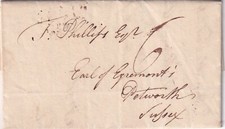 Phillips Esqr 6
Earl of Egremont's
Petworth
Sussex